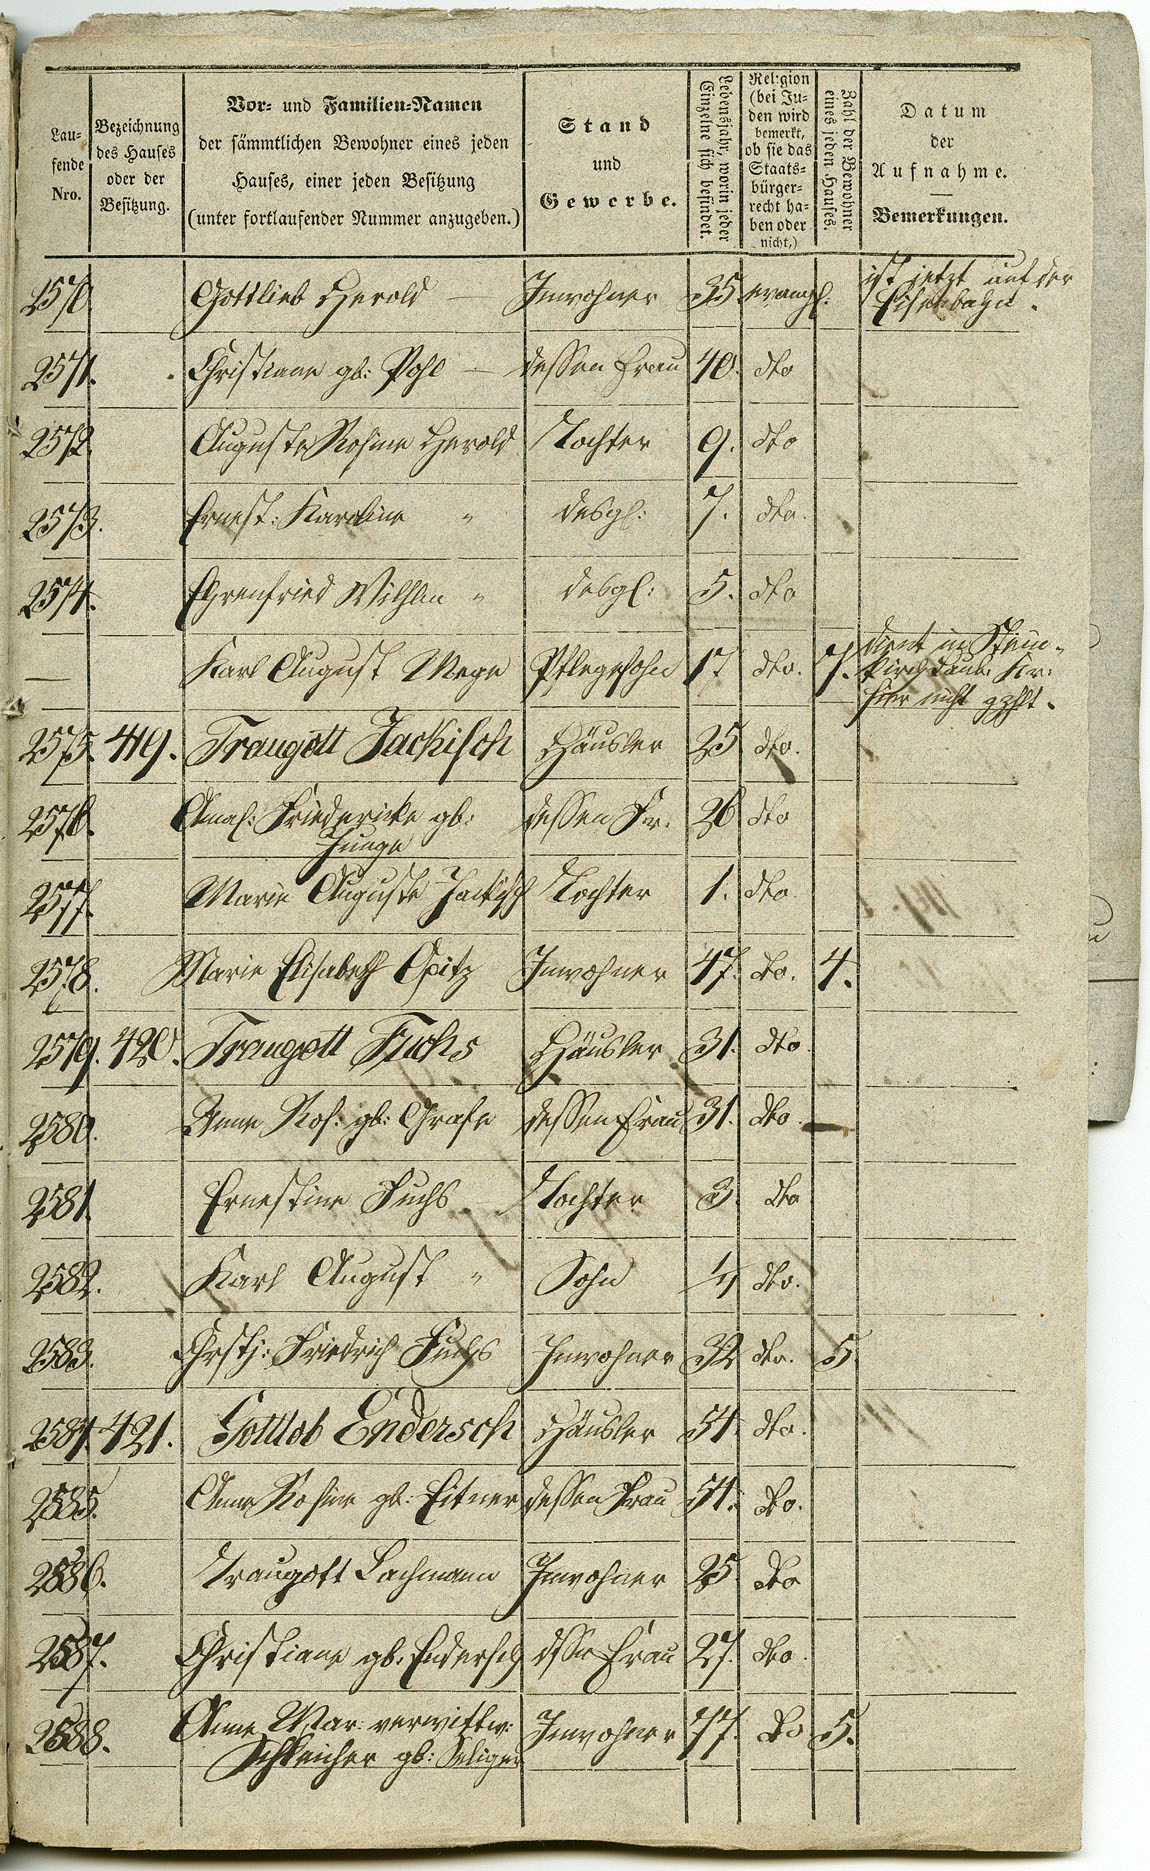 Lau-
fende
Nro.
Bezeichnung
des Hauses
oder der
Besitzung.
Vor- und Familien-Namen
der sämmtlichen Bewohner eines jeden
Hauses, einer jeden Besitzung
(unter fortlaufender Nummer anzugeben.)
Stand
und
Gewerbe.
Lebensjahr, worin jeder
Einzelne sich befindet.
Religion
(bei Ju-
den wird
bemerkt,
ob sie das
Staats-
bürger-
recht ha-
ben oder
nicht,)
Zahl der Bewohner
eines jeden Hauses.
Datum
der
Aufnahme.
Bemerkungen.
2570. Gottlieb Herold — Inwohner 35 evangl. ist jetzt auf der
Eisenbahn.
2571. Christiane gb: Pohl — dessen Frau 40. dto
2572. Auguste Rosine Herold Tochter 9. dto
2573. Ernest: Karoline " desgl: 7. dto.
2574. Ehrenfried Wilhlm " desgl: 5. dto
— Karl August Mege Pflegesohn 17 dto. 7. dient in Stein-
kirch Laub. Kr:
hier nicht gzhlt.
2575. 419. Traugott Jackisch Häusler 25 dto.
2576. Amal: Friedericke gb: dessen Fr. 26 dto
Junge
2577. Marie Auguste Jackisch Tochter 1. dto
2578. Marie Elisabeth Opitz Inwohner 47. dto. 4.
2579. 420. Traugott Fuchs Häusler 31. dto
2580. Anne Ros: gb: Grafe dessen Frau 31. dto.
2581. Ernestine Fuchs Tochter 3. dto
2582. Karl August " Sohn dto.
2583. Chrstj: Friedrich Fuchs Inwohner 32 dto. 5.
2584. 421. Gottlob Endersch Häusler 54. dto.
2585. Anna Rosine gb: Eitner dessen Frau 54. dto.
2586. Traugott Lachmann Inwohner 25 dto
2587. Christiane gb. Endersch dssn Frau 27. dto.
2588. Anne Mar: verwittw: Inwohner 77. dto 5.
Schleicher gb: Seliger